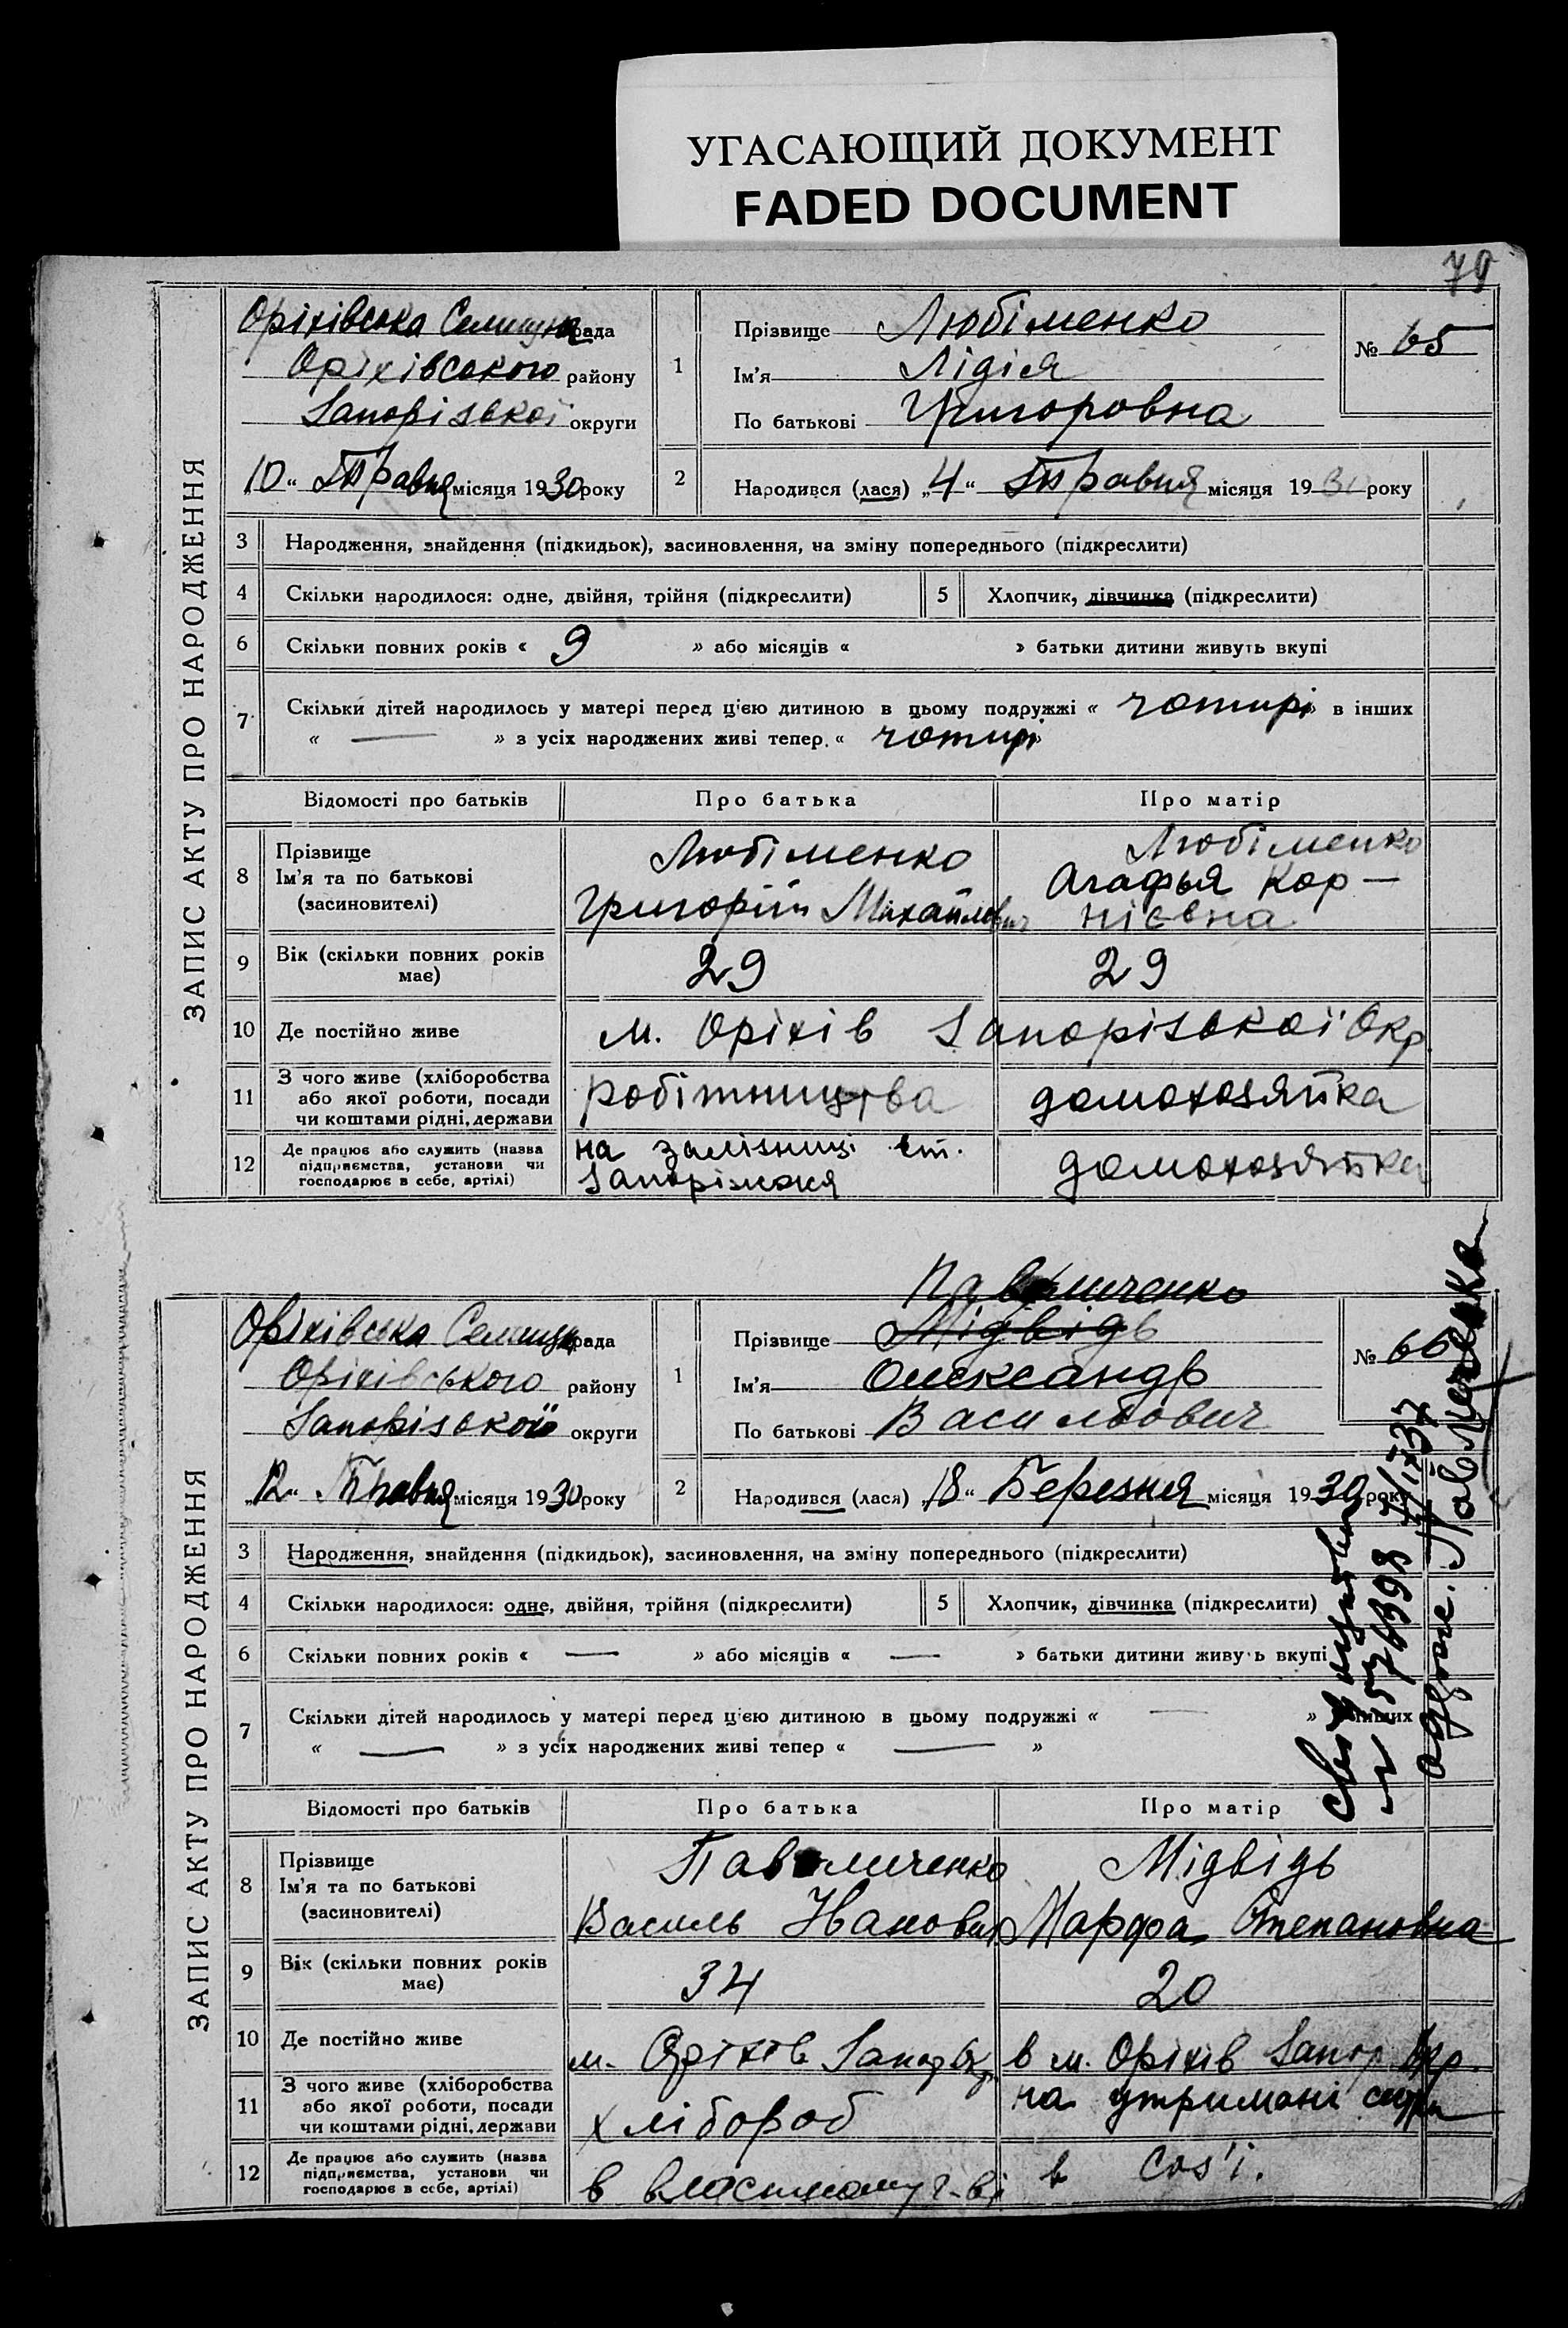 УГАСАЮЩИЙ ДОКУМЕНТ
FADED DOCUMENT
79
ЗАПИС АКТУ ПРО НАРОДЖЕННЯ
Оріхівська Селищна рада
Оріхівського району
Запорізької округи
„10“ Травня місяця 1930 року
1
Прізвище Любіменко
Ім'я Лідія
По батькові Григоровна
№ 65
2
Народився (лася) „4“ Травня місяця 1930 року
3 Народження, знайдення (підкидьок), засиновлення, на зміну попереднього (підкреслити)
4 Скільки народилося: одне, двійня, трійня (підкреслити) 5 Хлопчик, дівчинка (підкреслити)
6 Скільки повних років « 9 » або місяців « » батьки дитини живуть вкупі
7 Скільки дітей народилось у матері перед цією дитиною в цьому подружжі « чотирі » в інших
« — » з усіх народжених живі тепер « чотирі »
Відомості про батьків Про батька Про матір
8 Прізвище Ім'я та по батькові (засиновителі)
Любіменко Григорій Михайлович
Любіменко Агафья Корнієвна
9 Вік (скільки повних років має) 29 29
10 Де постійно живе м. Оріхів Запорізької Окр.
11 З чого живе (хліборобства або якої роботи, посади чи коштами рідні, держави
робітництва домохозяйка
12 Де працює або служить (назва підприємства, установи чи господарює в себе, артілі)
на залізниці ст. Запоріжжя
домохозяйка
ЗАПИС АКТУ ПРО НАРОДЖЕННЯ
Оріхівська Селищна рада
Оріхівського району
Запорізької округи
„12“ Травня місяця 1930 року
1
Прізвище Мідвідь
Ім'я Олександр
По батькові Васильович
№ 66
2
Народився (лася) „18“ Березня місяця 1930 року
3 Народження, знайдення (підкидьок), засиновлення, на зміну попереднього (підкреслити)
4 Скільки народилося: одне, двійня, трійня (підкреслити) 5 Хлопчик, дівчинка (підкреслити)
6 Скільки повних років « — » або місяців « — » батьки дитини живуть вкупі
7 Скільки дітей народилось у матері перед цією дитиною в цьому подружжі « — » в інших
« — » з усіх народжених живі тепер « — »
Відомості про батьків Про батька Про матір
8 Прізвище Ім'я та по батькові (засиновителі)
Василь Іванович
Мідвідь Марфа Степановна
9 Вік (скільки повних років має) 34 20
10 Де постійно живе м. Оріхів Запор Окр. в м. Оріхів Запор Окр.
11 З чого живе (хліборобства або якої роботи, посади чи коштами рідні, держави
хлібороб на утримані
12 Де працює або служить (назва підприємства, установи чи господарює в себе, артілі)
в власному г-ві в